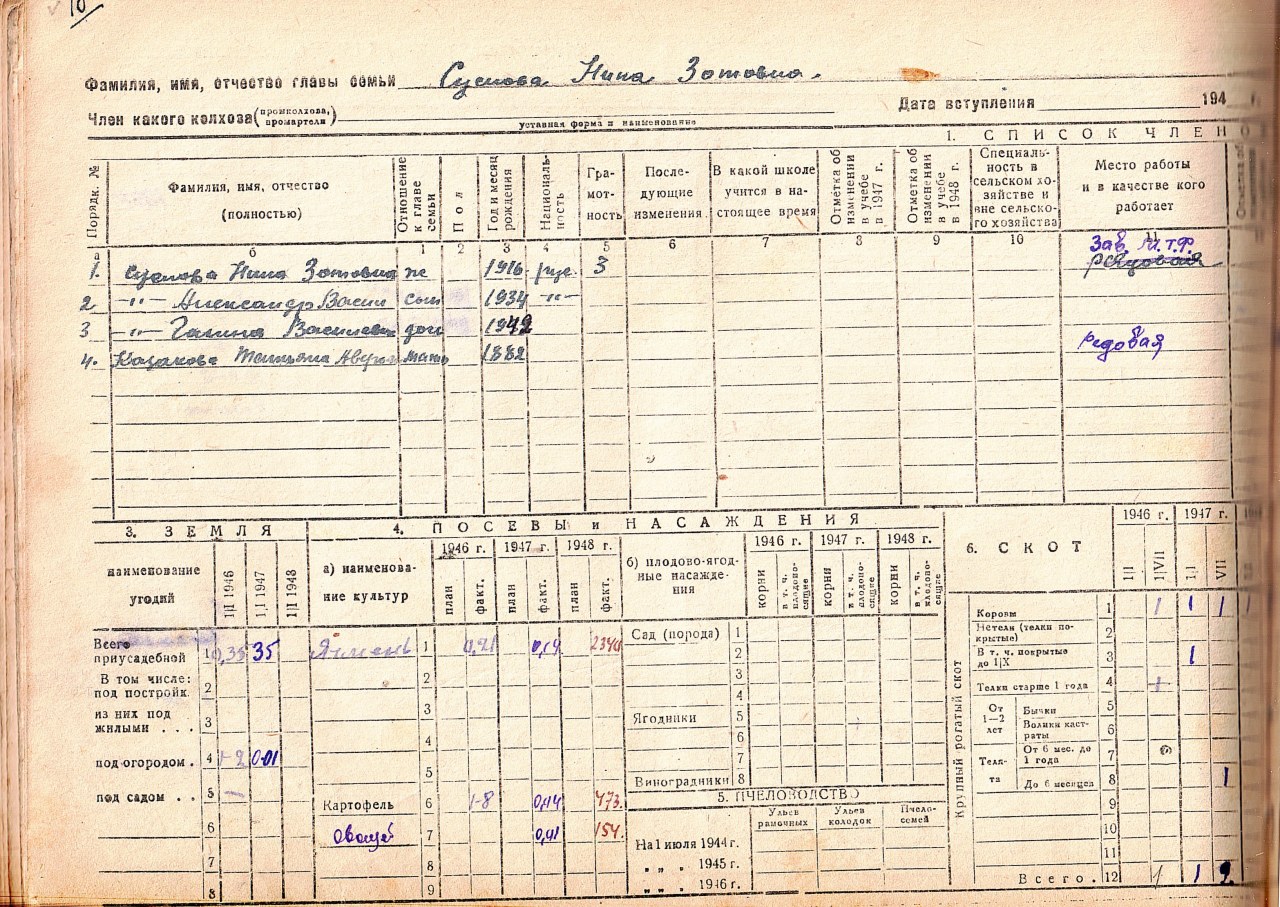 10
Фамилия, имя, отчество главы семьи Суслова Нина Зотовна.
Член какого колхоза (промколхоза, промартели) Дата вступления 194
уставная форма и наименование
1. СПИСОК ЧЛЕНО
Порядк. №
Фамилия, имя, отчество (полностью)
Отношение к главе семьи
Пол
Год и месяц рождения
Националь-ность
Гра-мот-ность
После-дующие изменения
В какой школе учится в на-стоящее время
Отметка об изменении в учебе в 1947 г.
Отметка об изменении в учебе в 1948 г.
Специаль-ность в сельском хо-зяйстве и вне сельско-го хозяйства
Место работы и в качестве кого работает
а б 1 2 3 4 5 6 7 8 9 10 11
Зав. М.Т.Ф.
1. Суслова Нина Зотовна 1916 рус. 3 рядовая
2 -"- Александр Васил сын 1934 -"-
3 -"- Галина Василевн доч 1942
4. Казакова Татьяна мать 1882 рядовая
3. ЗЕМЛЯ
наименование угодий
1|I 1946
1|I 1947
1|I 1948
Всего приусадебной 1 0,35 35
В том числе: под постройк. 2
из них под жилыми . . . 3
под огородом. 4 001
под садом . . 5 —
6
7
8
4. ПОСЕВЫ и НАСАЖДЕНИЯ
а) наименова-ние культур
1946 г. 1947 г. 1948 г.
план факт. план факт. план факт.
Ячмень 1 0,21 0,19
2
3
4
5
Картофель 6 1-8 0,14 473.
Овощей 7 154.
8
9
б) плодово-ягод-ные насажде-ния
1946 г. 1947 г. 1948 г.
корни в т. ч. плодоно-сящие корни в т. ч. плодоно-сящие корни в т. ч. плодоно-сящие
Сад (порода) 1
2
3
4
Ягодники 5
6
7
Виноградники 8
5. ПЧЕЛОВОДСТВО
Ульев рамочных Ульев колодок Пчело-семей
На 1 июля 1944 г.
„ „ „ 1945 г.
„ „ „ 1946 г.
6. СКОТ
1946 г. 1947 г.
1|I 1|VII 1|I VII
Крупный рогатый скот
Коровы 1 1 1 1
Нетели (телки по-крытые) 2
В т. ч. покрытые до 1|X 3 1
Телки старше 1 года 4
От 1—2 лет
Бычки 5
Волики каст-раты 6
Теля-та
От 6 мес. до 1 года 7
До 6 месяцев 8 1
9
10
11
Всего. 12 1 1 2